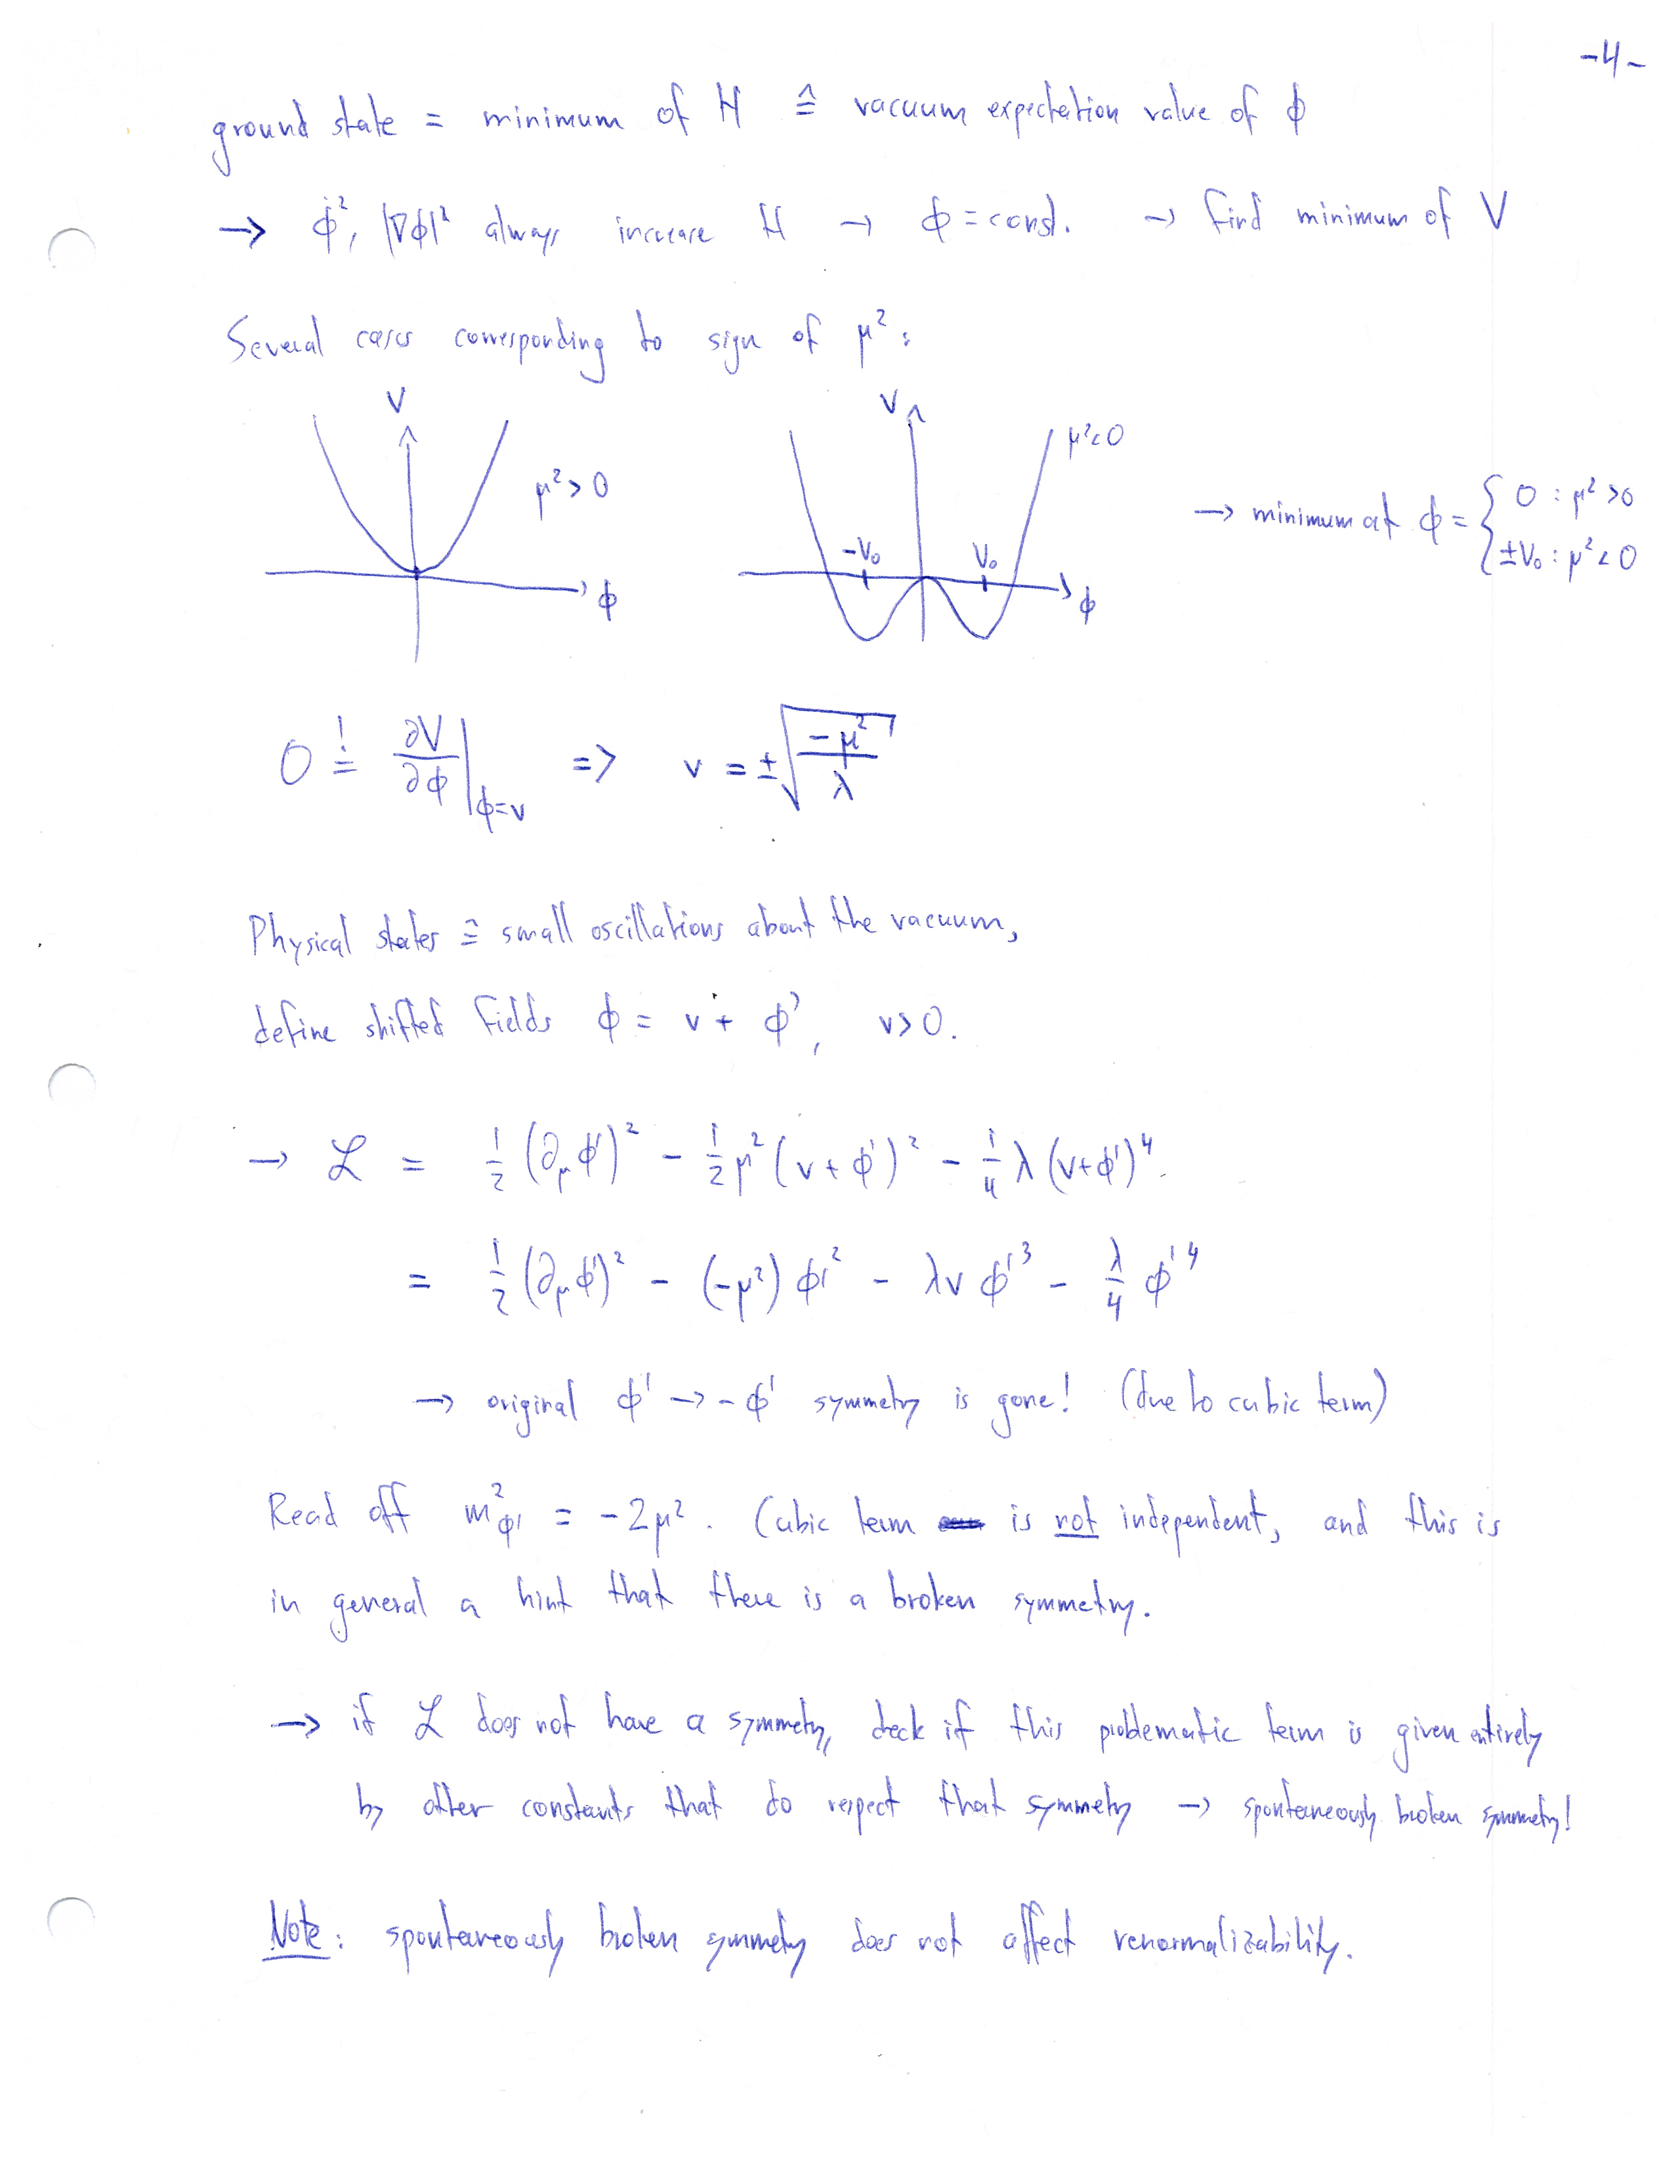 -4-
ground state = minimum of H ≙ vacuum expectation value of ϕ
→ ϕ̇², |∇ϕ|² always increase H → ϕ = const. → find minimum of V
Several cases corresponding to sign of μ²:
V
μ²>0
ϕ
V
μ²<0
-V₀
V₀
ϕ
→ minimum at ϕ = { 0 : μ²>0
±V₀ : μ²<0
0 =! ∂V/∂ϕ |ϕ=v => v = ±√(-μ²/λ)
Physical states ≙ small oscillations about the vacuum,
define shifted fields ϕ = v + ϕ', v>0.
→ ℒ = 1/2 (∂μϕ')² - 1/2 μ² (v+ϕ')² - 1/4 λ (v+ϕ')⁴
= 1/2 (∂μϕ')² - (-μ²) ϕ'² - λv ϕ'³ - λ/4 ϕ'⁴
→ original ϕ' → -ϕ' symmetry is gone! (due to cubic term)
Read off m²ϕ' = -2μ². Cubic term is not independent, and this is
in general a hint that there is a broken symmetry.
→ if ℒ does not have a symmetry, check if this problematic term is given entirely
by other constants that do respect that symmetry → spontaneously broken symmetry!
Note: spontaneously broken symmetry does not affect renormalizability.